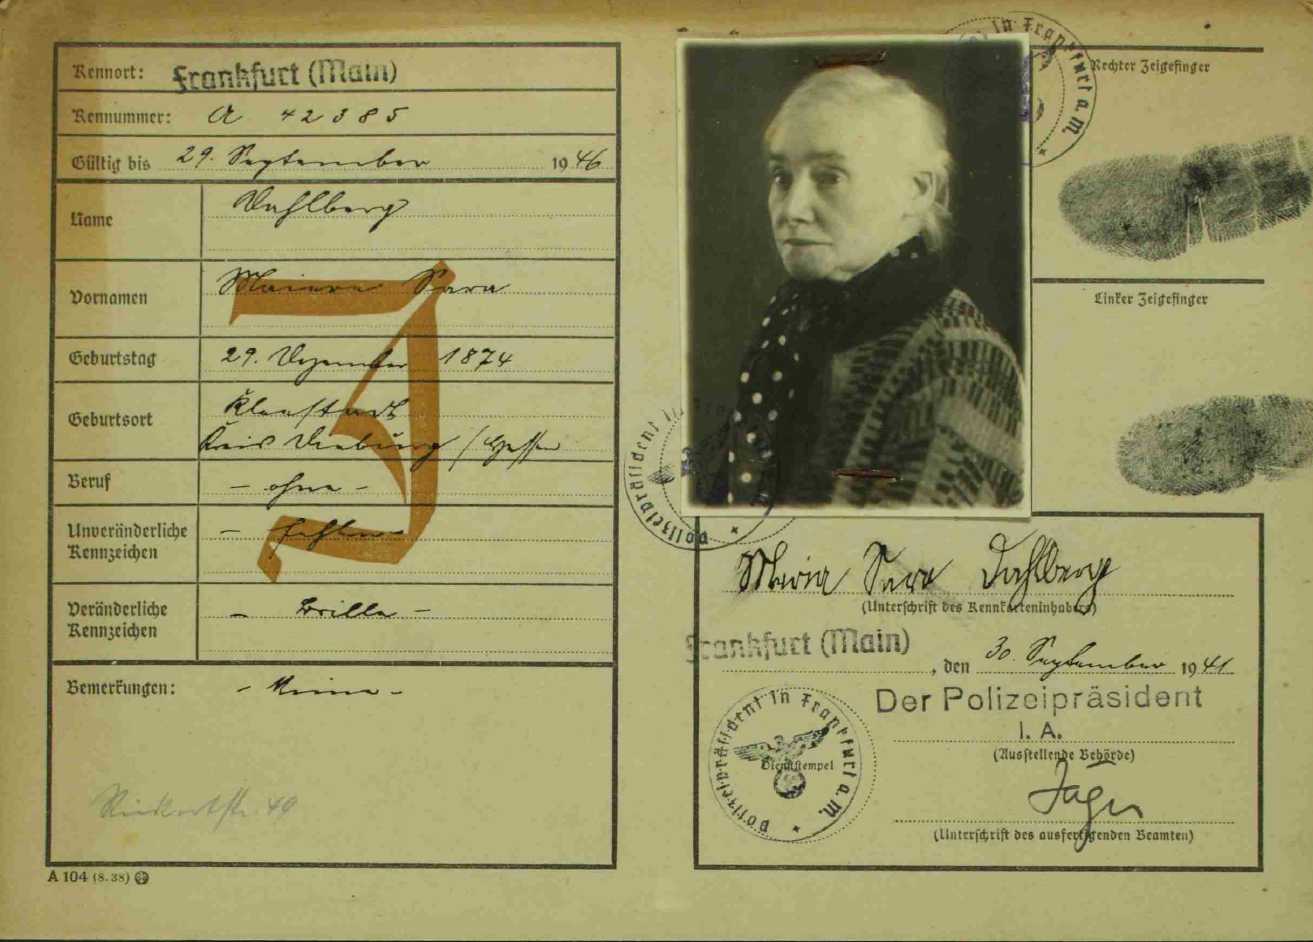 Kennort: Frankfurt (Main)
Kennummer: A 42385
Gültig bis 29. September 1946
Name Dahlberg
J
Vornamen Sara
Geburtstag 29. Dezember 1874
Geburtsort Kleestadt
Kreis Dieburg / Hessen
Beruf - ohne -
Unveränderliche
Kennzeichen - fehlen
Veränderliche
Kennzeichen - Brille -
Bemerkungen: - Keine -
A 104 (8. 38)
Rechter Zeigefinger
Linker Zeigefinger
Polizeipräsident in
in Frankfurt a. M.
Maria Sara Dahlberg
(Unterschrift des Kennkarteninhabers)
Frankfurt (Main), den 30. September 1941
Der Polizeipräsident
I. A.
(Ausstellende Behörde)
Polizeipräsident in Frankfurt a. M.
Dienststempel
Jäger
(Unterschrift des ausfertigenden Beamten)